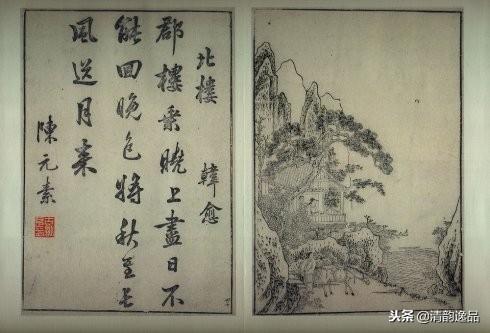 北樓 韓愈
郡樓乘曉上盡日不
能回晚色將秋至長
風送月来
陳元素
头条 @清韵逸品